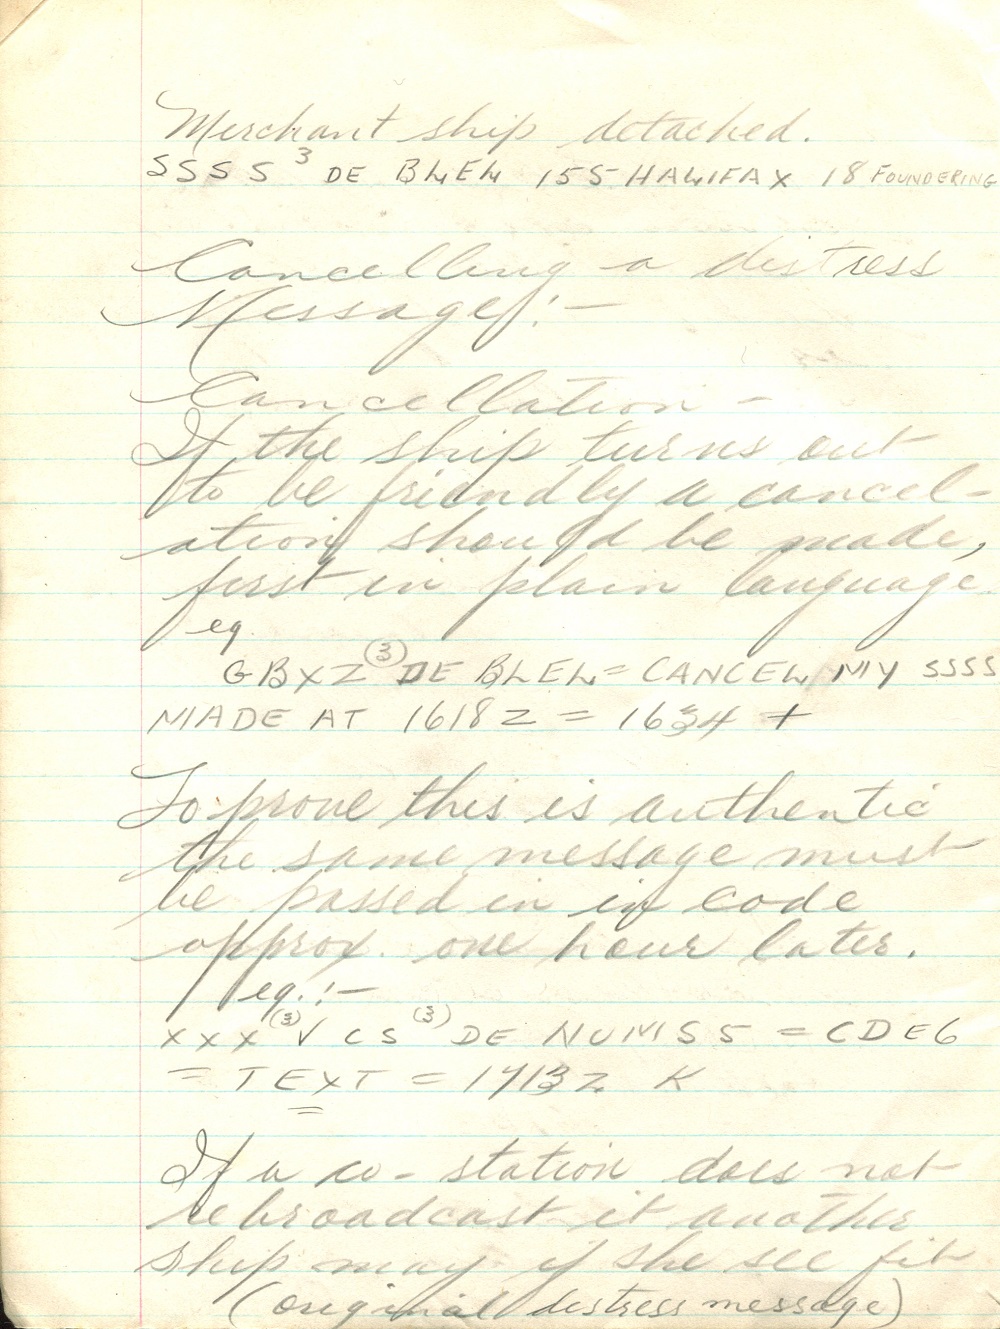 Merchant ship detached.
SSSS 3 DE BLEL 155 HALIFAX 18 FOUNDERING
Cancelling a distress
Message:-
Cancellation -
If the ship turns out
to be friendly a cancel-
ation should be made,
first in plain language
eg.
GBXZ (3) DE BLEL = CANCEL MY SSSS
MADE AT 1618Z = 1634 +
To prove this is authentic
the same message must
be passed in in code
approx. one hour later.
eg.:-
XXX (3) V CS (3) DE NUMS5 = CDE6
= TEXT = 1713Z K
If a co-station does not
rebroadcast it another
ship may if she see fit
(original distress message)